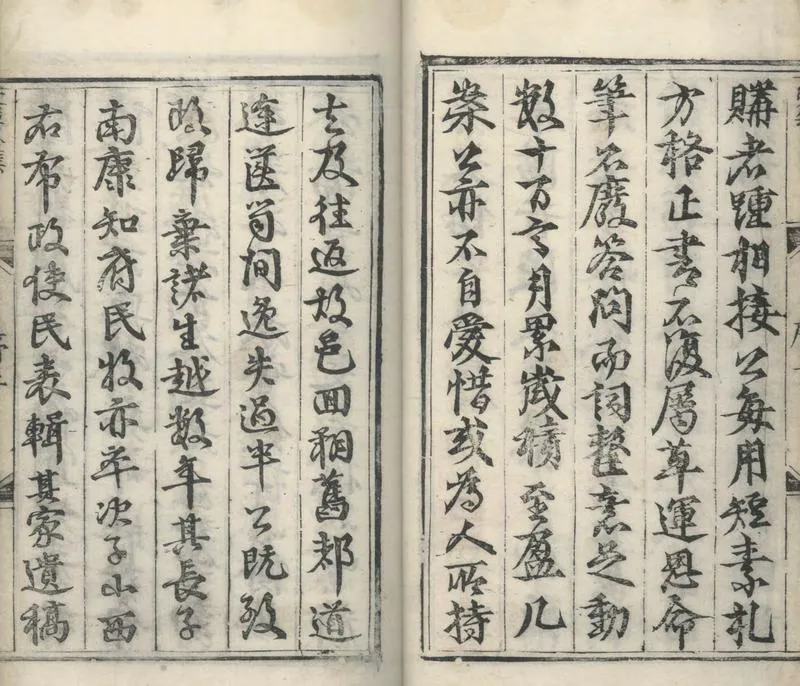 購者踵相接公每用短素札
方格正書不復屬草運思命
筆不廢答問而詞整意足動
數十百言月累歲積至盈几
案公亦不自愛惜或為人所持
去及往返故邑回翔舊都道
連篋笥間逸失過半公既致
政歸棄諸生越數年其長子
南康知府民牧亦卒次子山西
右布政使民表輯其家遺稿